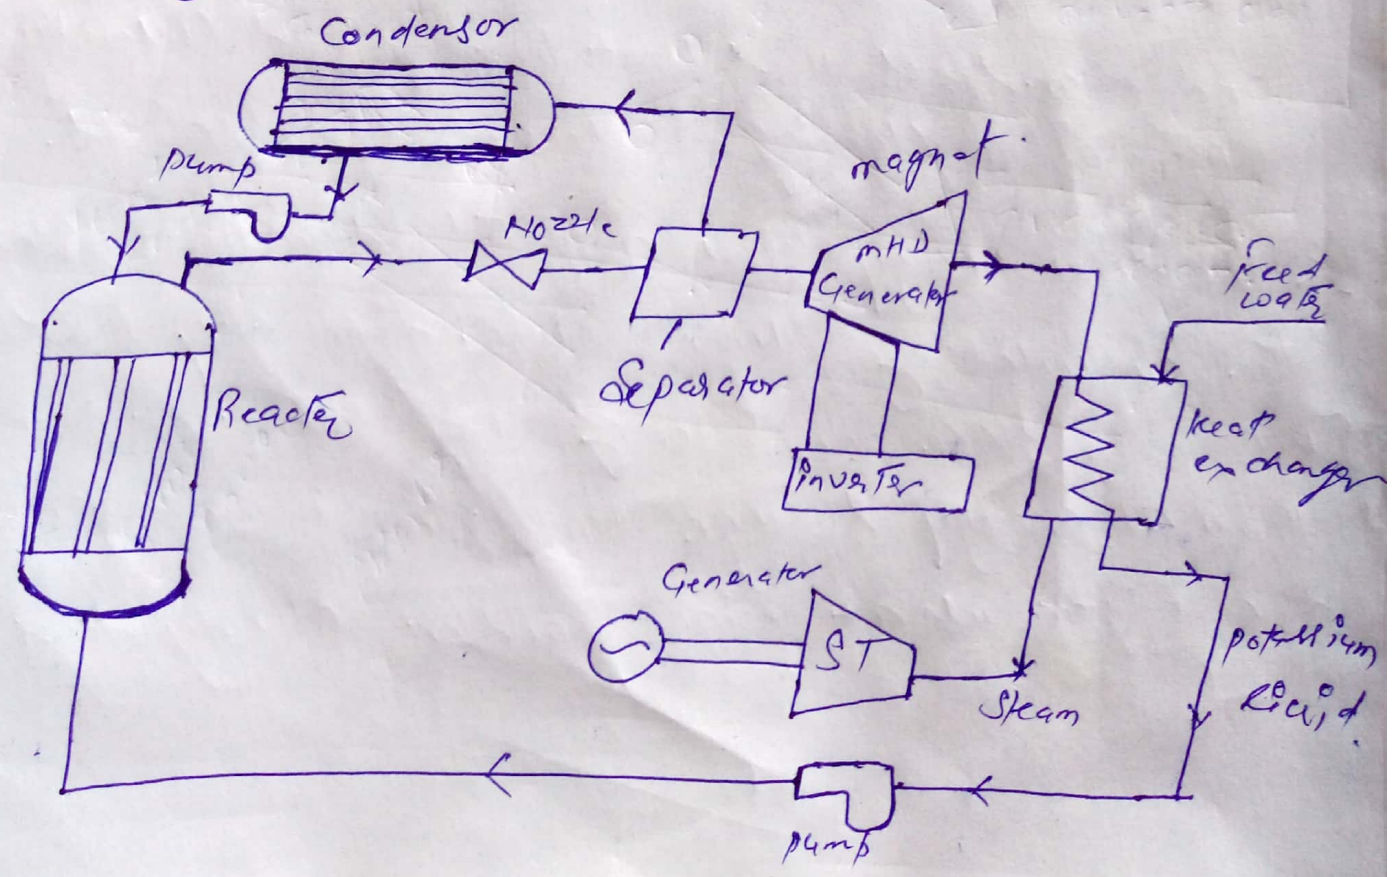 Condensor
pump
Nozzle
magnet
MHD
Generator
Feed
water
Separator
Reacter
inverter
Heat
exchanger
Generator
ST
Steam
potassium
Liquid
pump